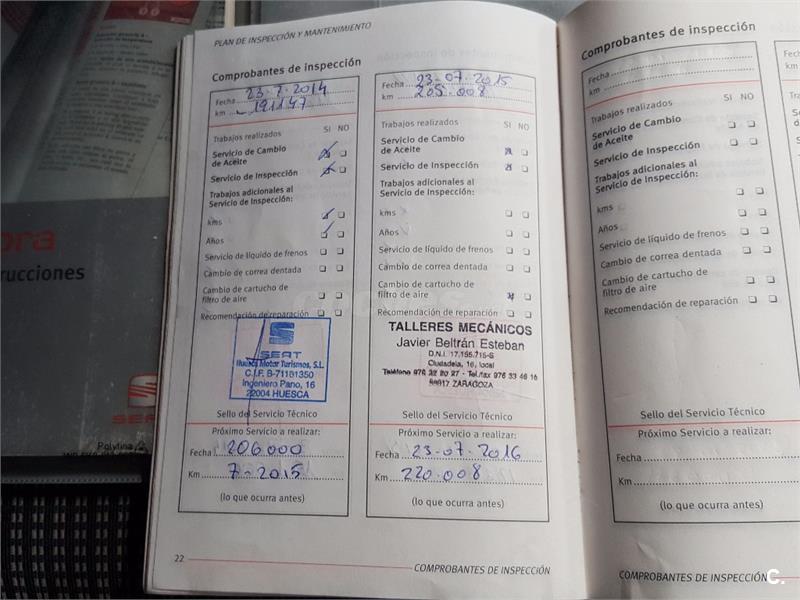 PLAN DE INSPECCIÓN Y MANTENIMIENTO
Comprobantes de inspección
Fecha 23-7-2014
km 191147
Trabajos realizados SI NO
Servicio de Cambio
de Aceite
Servicio de Inspección
Trabajos adicionales al
Servicio de Inspección:
kms
Años
Servicio de líquido de frenos
Cambio de correa dentada
Cambio de cartucho de
filtro de aire
Recomendación de reparación
SEAT
Huesca Motor Turismos, S.L.
C.I.F. B-71181350
Ingeniero Pano, 16
22004 HUESCA
Sello del Servicio Técnico
Próximo Servicio a realizar:
Fecha 206000
Km 7-2015
(lo que ocurra antes)
22
Fecha 23-07-2015
km 205.008
Trabajos realizados SI NO
Servicio de Cambio
de Aceite
Servicio de Inspección
Trabajos adicionales al
Servicio de Inspección:
kms
Años
Servicio de líquido de frenos
Cambio de correa dentada
Cambio de cartucho de
filtro de aire
Recomendación de reparación
TALLERES MECÁNICOS
Javier Beltrán Esteban
Ciudadela, 16, local
ZARAGOZA
Sello del Servicio Técnico
Próximo Servicio a realizar:
Fecha 23-07-2016
Km 220.008
(lo que ocurra antes)
COMPROBANTES DE INSPECCIÓN
Comprobantes de inspección
Fecha
km
Trabajos realizados SI NO
Servicio de Cambio
de Aceite
Servicio de Inspección
Trabajos adicionales al
Servicio de Inspección:
kms
Años
Servicio de líquido de frenos
Cambio de correa dentada
Cambio de cartucho de
filtro de aire
Recomendación de reparación
Sello del Servicio Técnico
Próximo Servicio a realizar:
Fecha
Km
(lo que ocurra antes)
COMPROBANTES DE INSPECCIÓN
C.